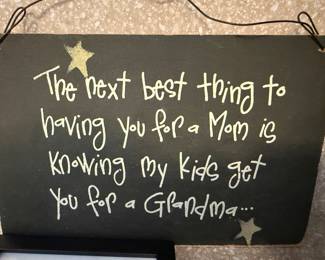 The next best thing to
having you for a Mom is
Knowing my Kids get
You for a Grandma...